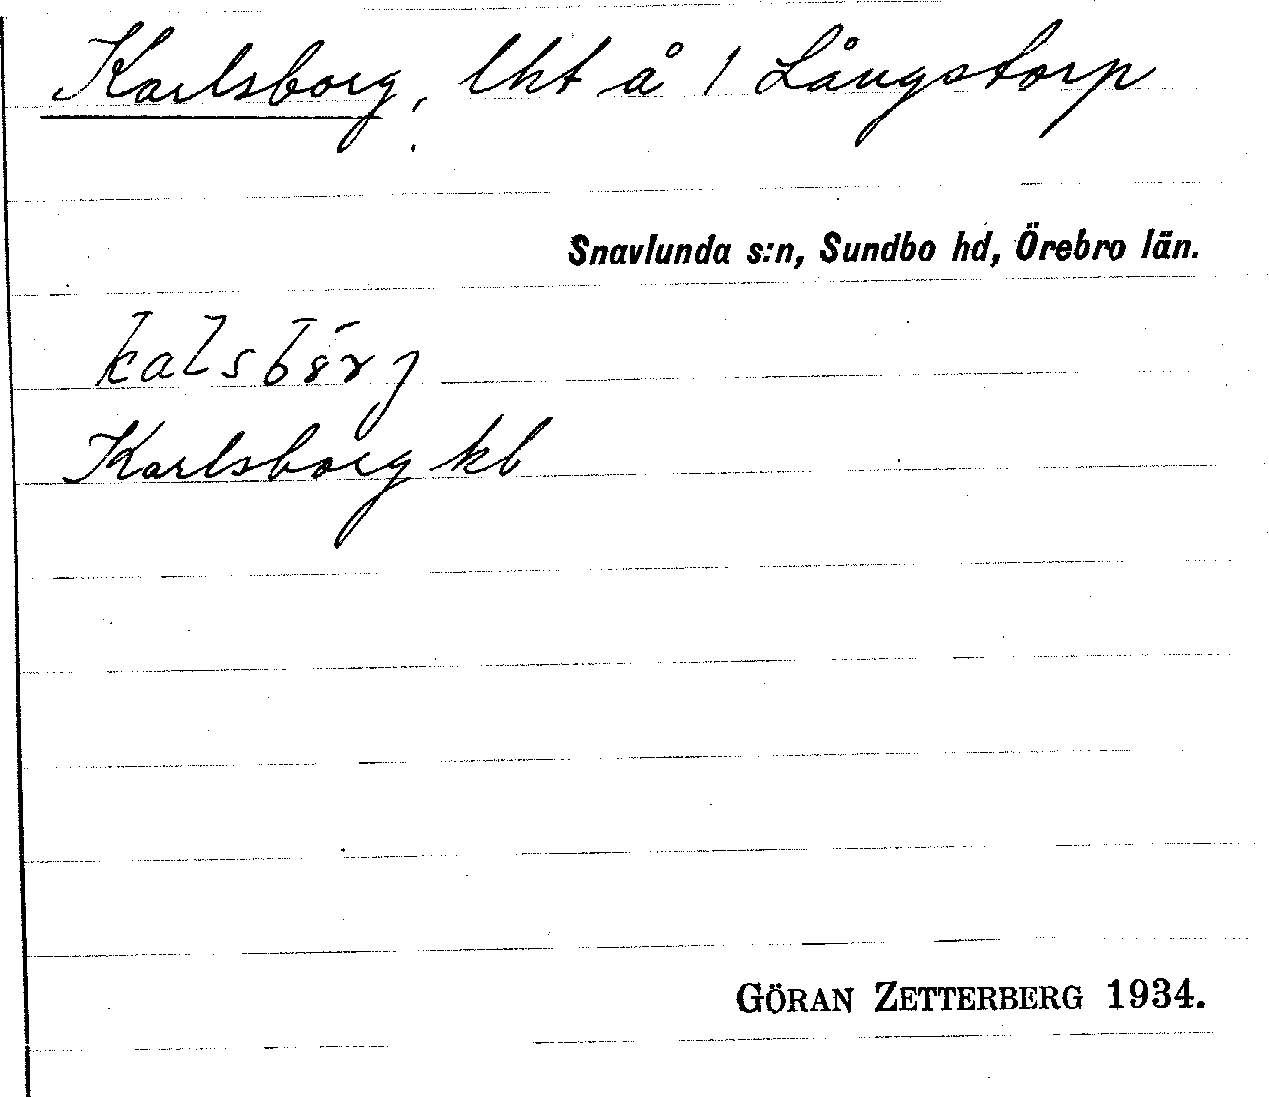 Karlsborg, lht å 1 Långstorp
Snavlunda s:n, Sundbo hd, Örebro län.
Karlsborg kb
GÖRAN ZETTERBERG 1934.